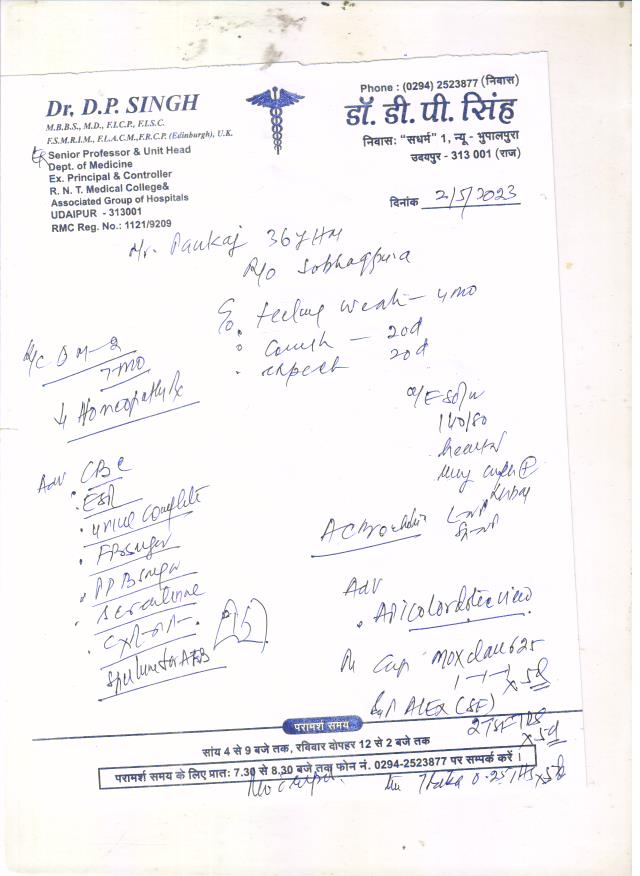 Dr. D.P. SINGH
M.B.B.S., M.D., F.I.C.P., F.I.S.C.
F.S.M.R.I.M., F.I.A.C.M., F.R.C.P. (Edinburgh), U.K.
Ex Senior Professor & Unit Head
Dept. of Medicine
Ex. Principal & Controller
R. N. T. Medical College&
Associated Group of Hospitals
UDAIPUR - 313001
RMC Reg. No.: 1121/9209
Phone : (0294) 2523877 (निवास)
डॉ. डी. पी. सिंह
निवासः "सधर्म" 1, न्यू - भुपालपुरा
उदयपुर - 313 001 (राज)
दिनांक 2/5/2023
Mr. Pankaj 36y HM
R/o Sobhagpura
C/o. feeling weak - 4mo
Cough - 20d
expect 20d
K/C D M-2
7mo
Homeopathy Rx
O/E
140/80
Adv CBC
ESR
Urine Complete
FBsugar
PPBsugar
S creatinine
Sputum for AFB
Adv
Apicolordotic view
Cap Moxclav 625
1-1-1 x 5d
Syp ALEX (SF)
2TSF TDS
x 5d
परामर्श समय
सांय 4 से 9 बजे तक, रविवार दोपहर 12 से 2 बजे तक
परामर्श समय के लिए प्रातः 7.30 से 8.30 बजे तक फोन नं. 0294-2523877 पर सम्पर्क करें ।
0.25 x 5d